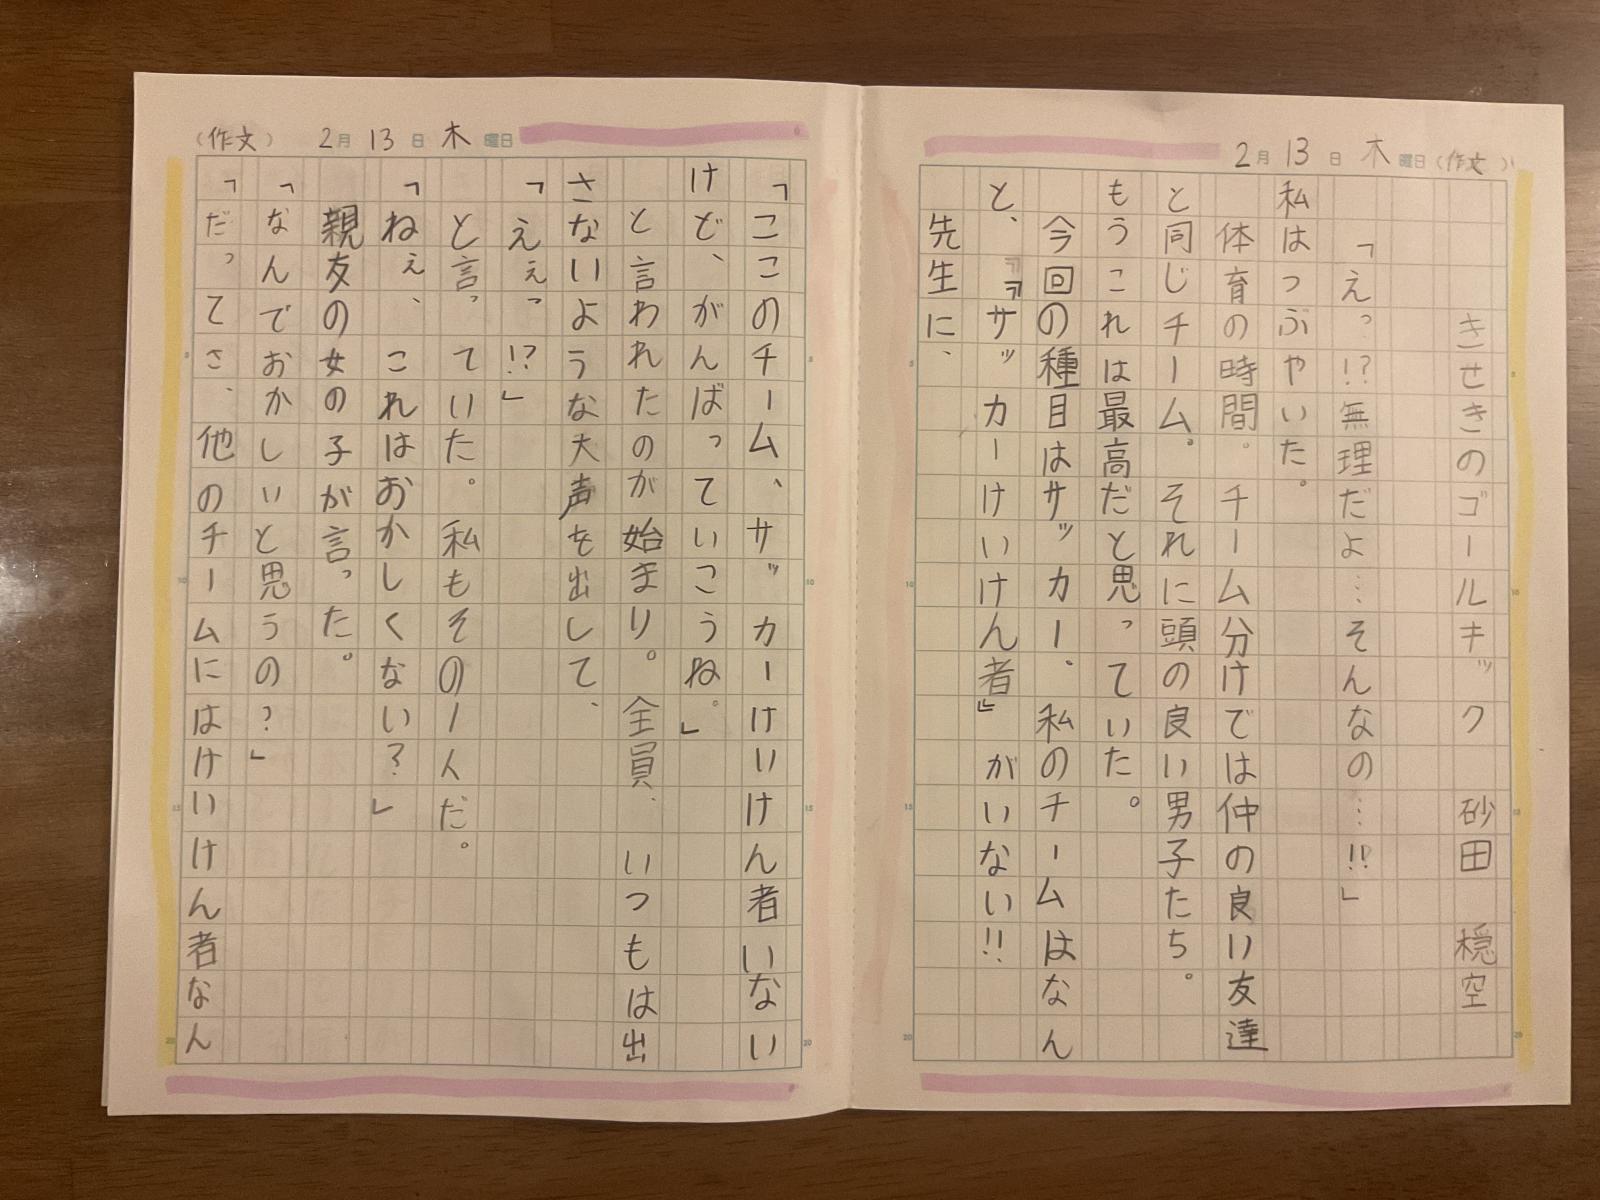 2月13日木曜日(作文)
きせきのゴールキック 砂田 穏空
「えっ!?無理だよ…そんなの…!!」
私はつぶやいた。
体育の時間。チーム分けでは仲の良い友達
と同じチーム。それに頭の良い男子たち。
もうこれは最高だと思っていた。
今回の種目はサッカー、私のチームはなん
と、『サッカーけいけん者』がいない!!
先生に、
(作文) 2月13日木曜日
「ここのチーム、サッカーけいけん者いない
けど、がんばっていこうね。」
と言われたのが始まり。全員、いつもは出
さないような大声を出して、
「えぇっ!?」
と言っていた。私もその一人だ。
「ねぇ、これはおかしくない?」
親友の女の子が言った。
「なんでおかしいと思うの?」
「だってさ、他のチームにはけいけん者なん